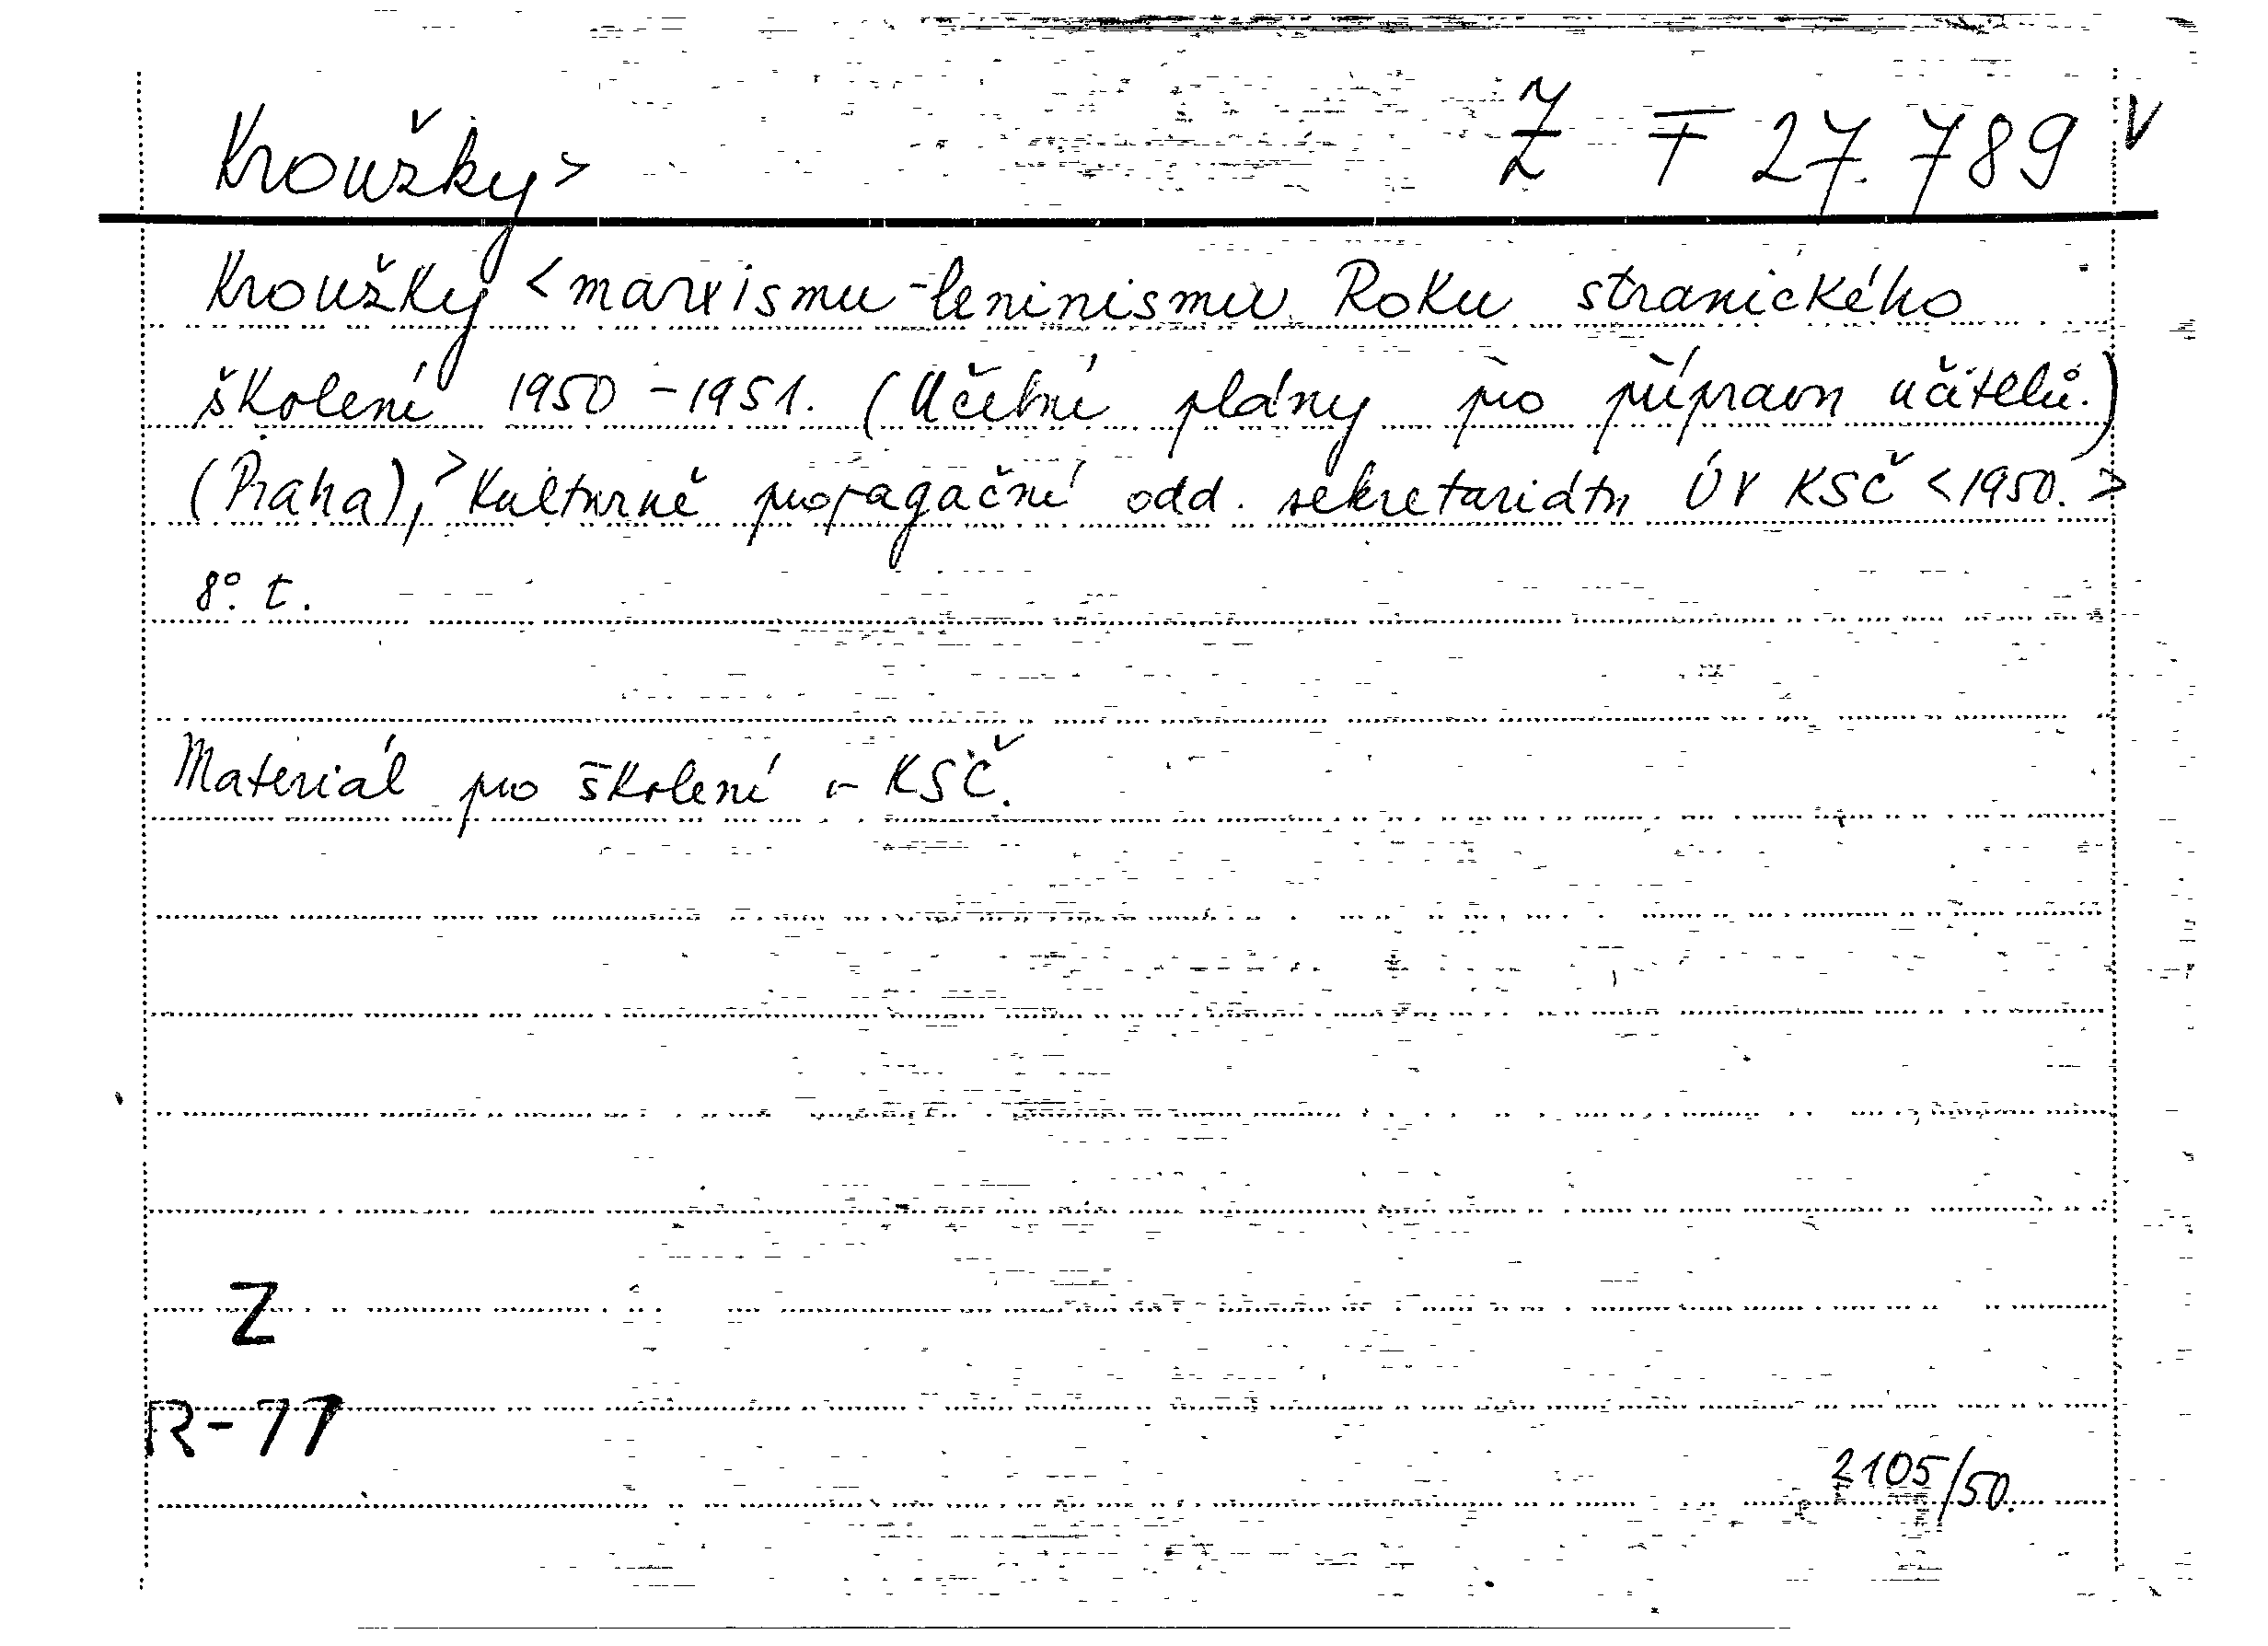 Kroužky> Ž F 27.789 v
Kroužky <marxismu-leninismu Roku stranického
školení 1950-1951. (Učební plány pro přípravu učitelů.)
(Praha),> Kulturně propagační odd. sekretariátu ÚV KSČ <1950.>
8°. t.
Materiál pro školení - KSČ.
Z
R-77
2105/50.